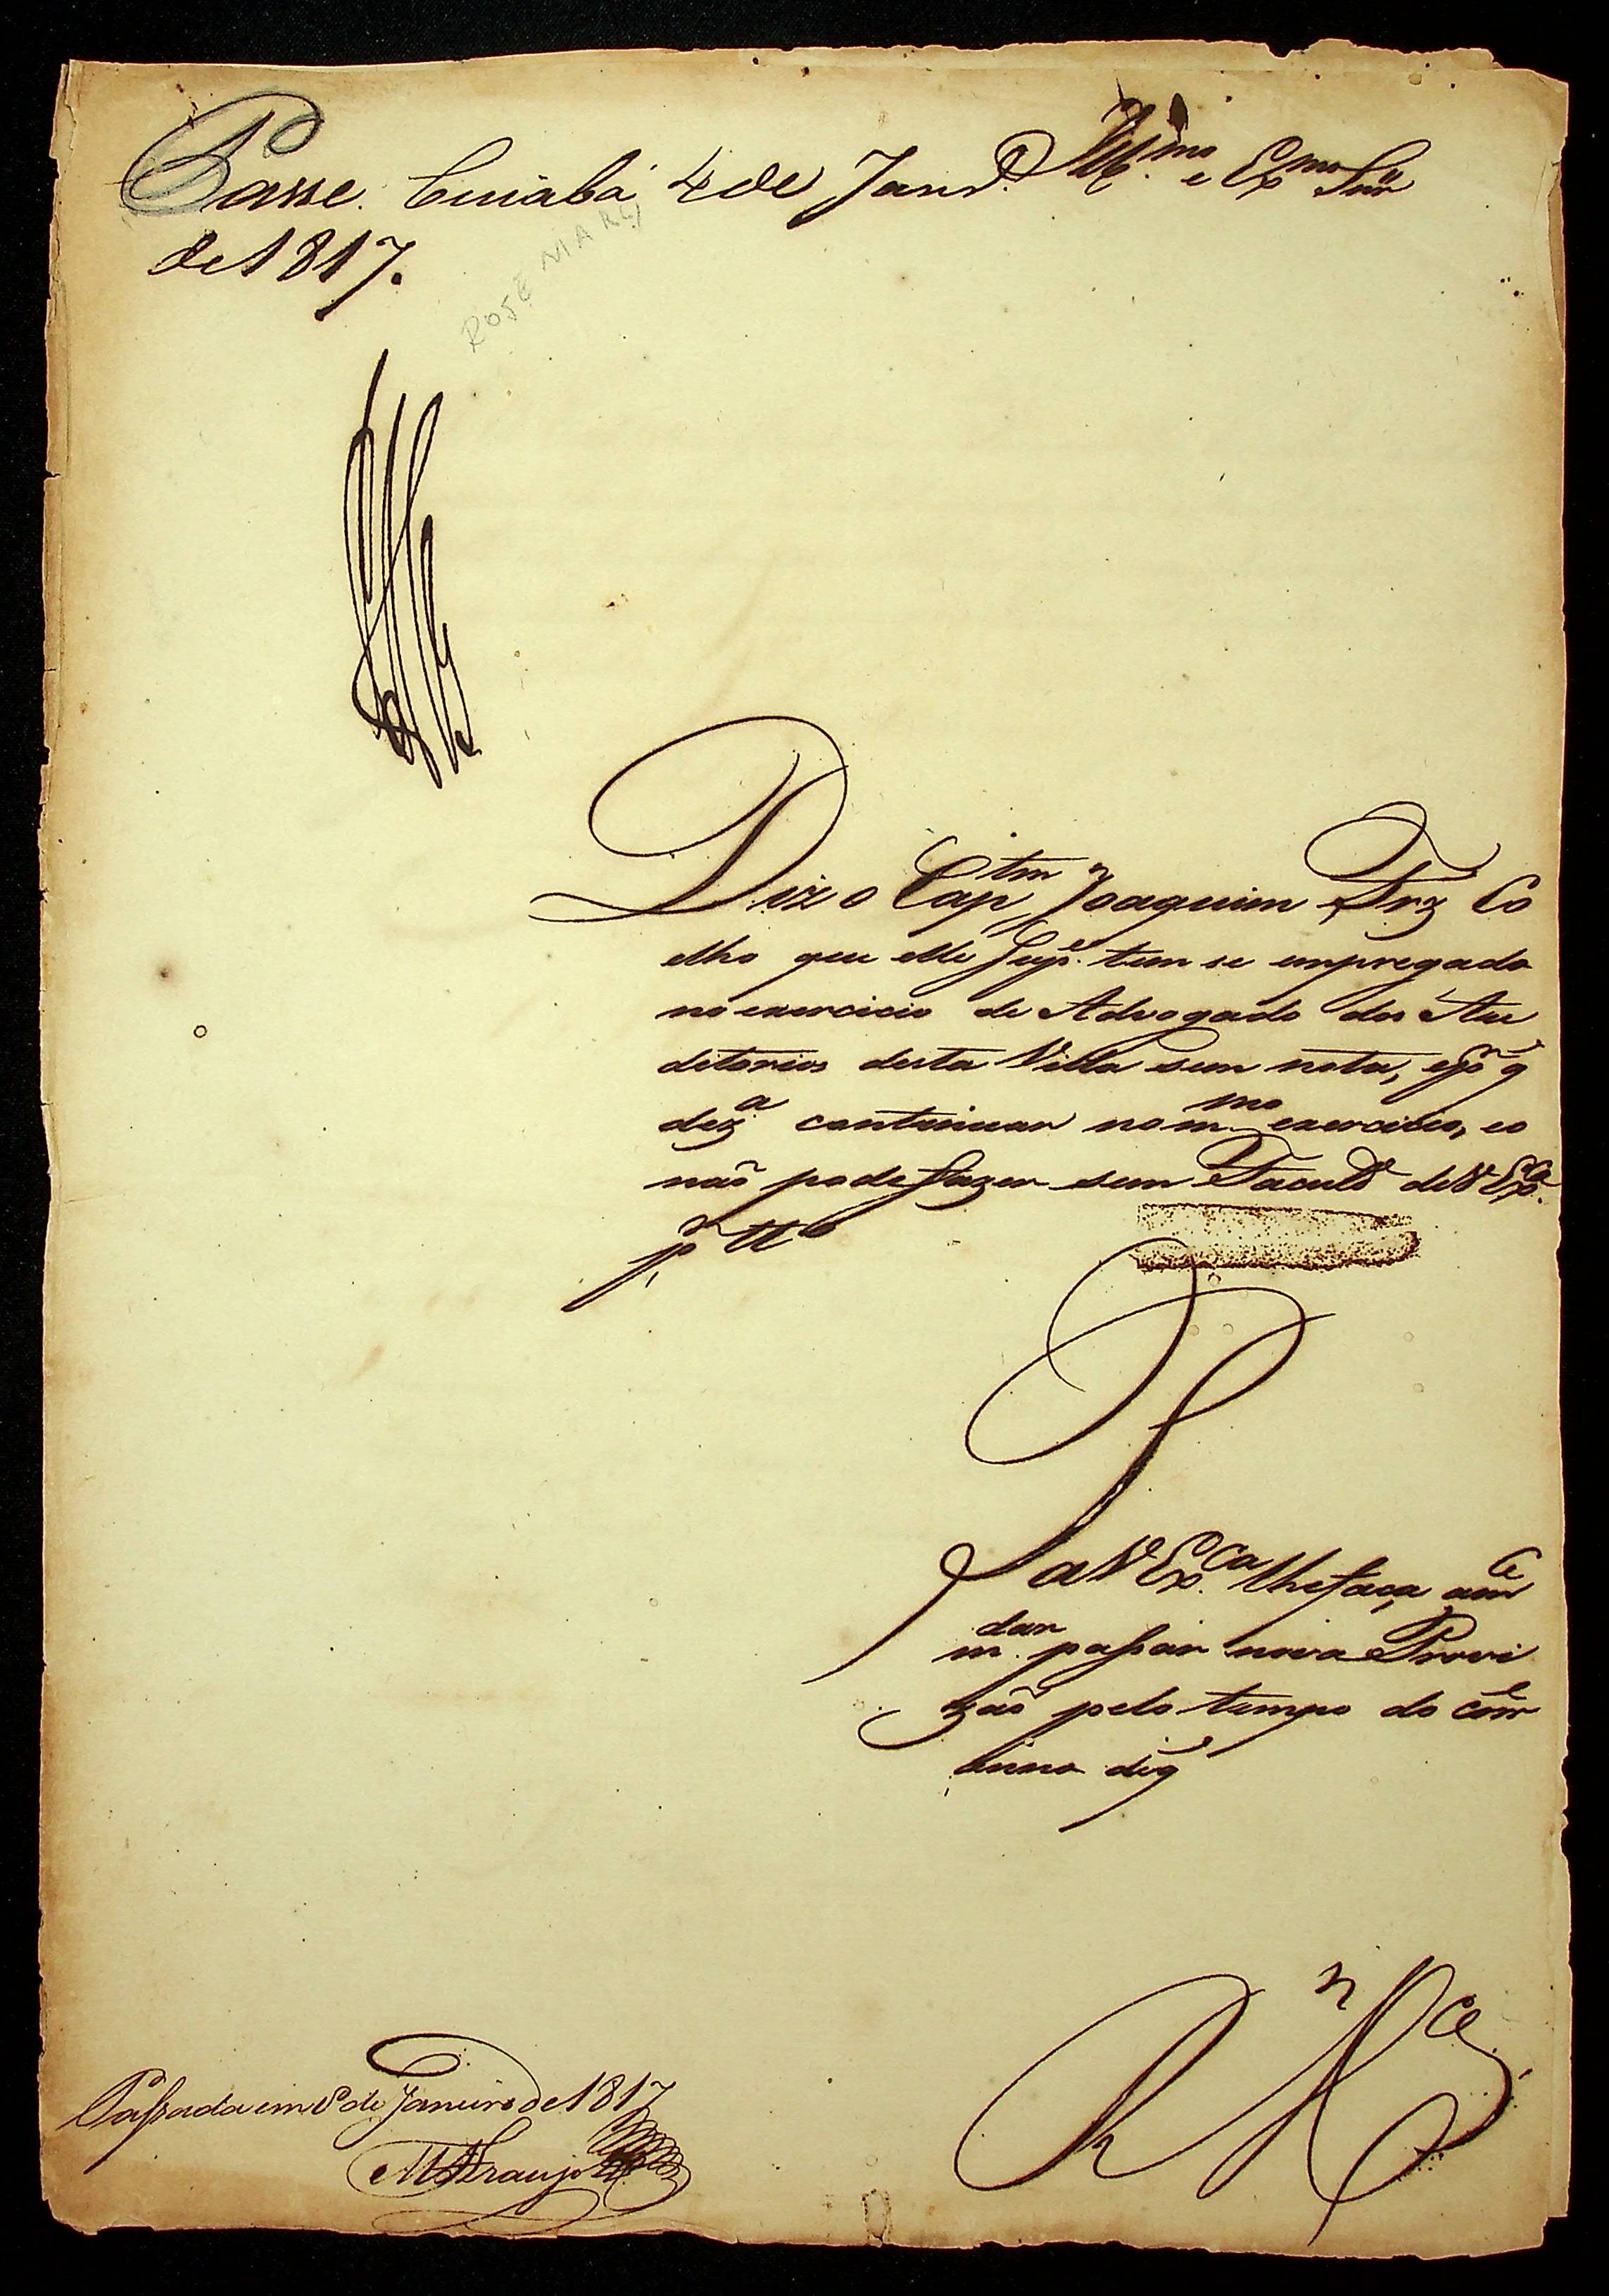 Passe. Cuiabá 4 de Janr.º
de 1817.
Ill.mo e Ex.mo Snr
ROSEMARY
Diz o Cap.tm Joaquim Frz Co
elho que elle Sup.e tem se empregado
no exercicio de Advogado dos Au
ditorios desta Villa sem nota, e pr q
dez.a continuar no m.mo exercicio, e o
naõ pode fazer sem Faculd.e de V Ex.ca
p.r tto
P
a V Ex.ca lhe faça a m.ce
m.dar passar nova Provi
zaõ pelo tempo do corr.e
anno de q
R M.ce
Passada em 8 de Janeiro de 1817
Araujo